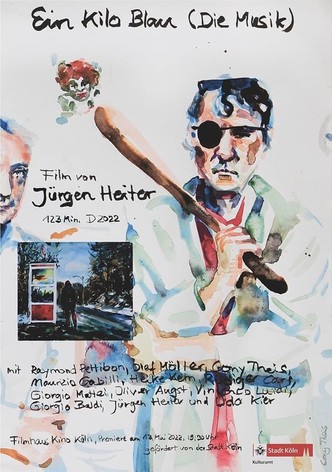 Ein Kilo Blau (Die Musik)
Film von
Jürgen Heiter
123 Min. D 2022
mit Raymond Pettibon, Olaf Möller, Cony Theis,
Maurizio Gabilli, Heike Kern, Rüdiger Carl,
Giorgio Mattei, Oliver Augst, Vincenzo
Giorgio Baldi, Jürgen Heiter und Udo Kier
Filmhaus Kino Köln, Premiere am Mai 2022, Uhr
gefördert von der Stadt Köln
Stadt Köln
Kulturamt
Cony Theis